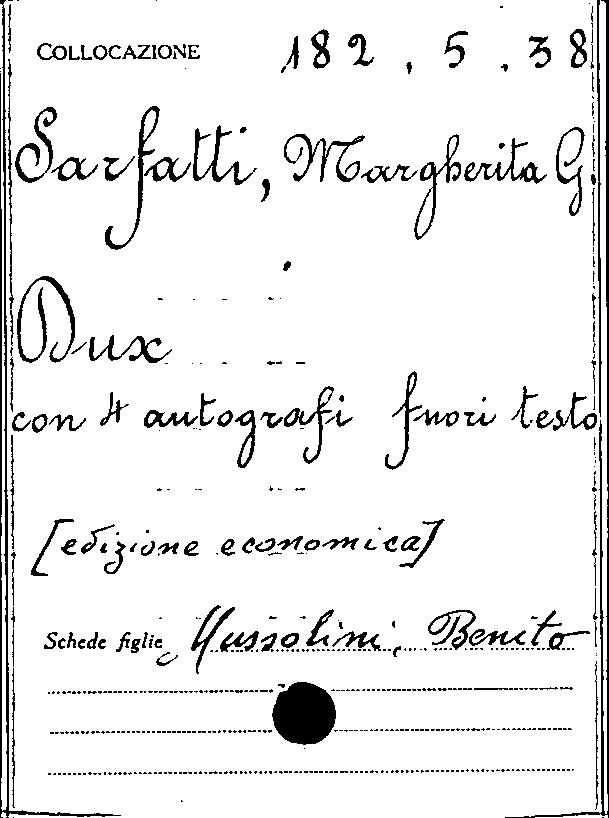 COLLOCAZIONE 182.5.38
Sarfatti, Margherita G.
Dux
con 4 autografi fuori testo
[edizione economica]
Schede figlie Mussolini, Benito